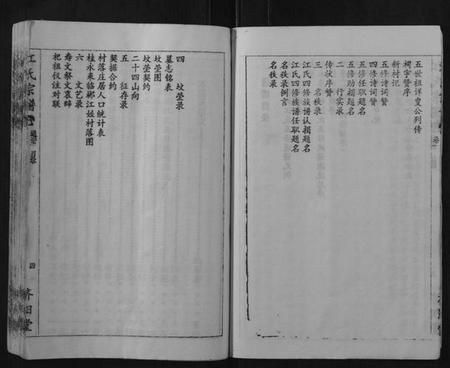 五世祖洋皇公列传
祠宇赞序
新村记
四修诗词赞
五修诗词赞
五修任职题名
五修助捐题名
二 行实录
传状序赞
三 名秩录
江氏四修族谱认捐题名
江氏四修族谱任职题名
名秩录例言
名秩录
四 坟茔录
墓志铭表
坟茔图
坟茔契约
二十四山向
五 征存录
契据合约
村落庄居人口统计表
桂永耒临郴江姓村落图
六 文艺录
寿文祭文哀辞
祀祖仪注对联
江氏宗谱
四
济阳堂